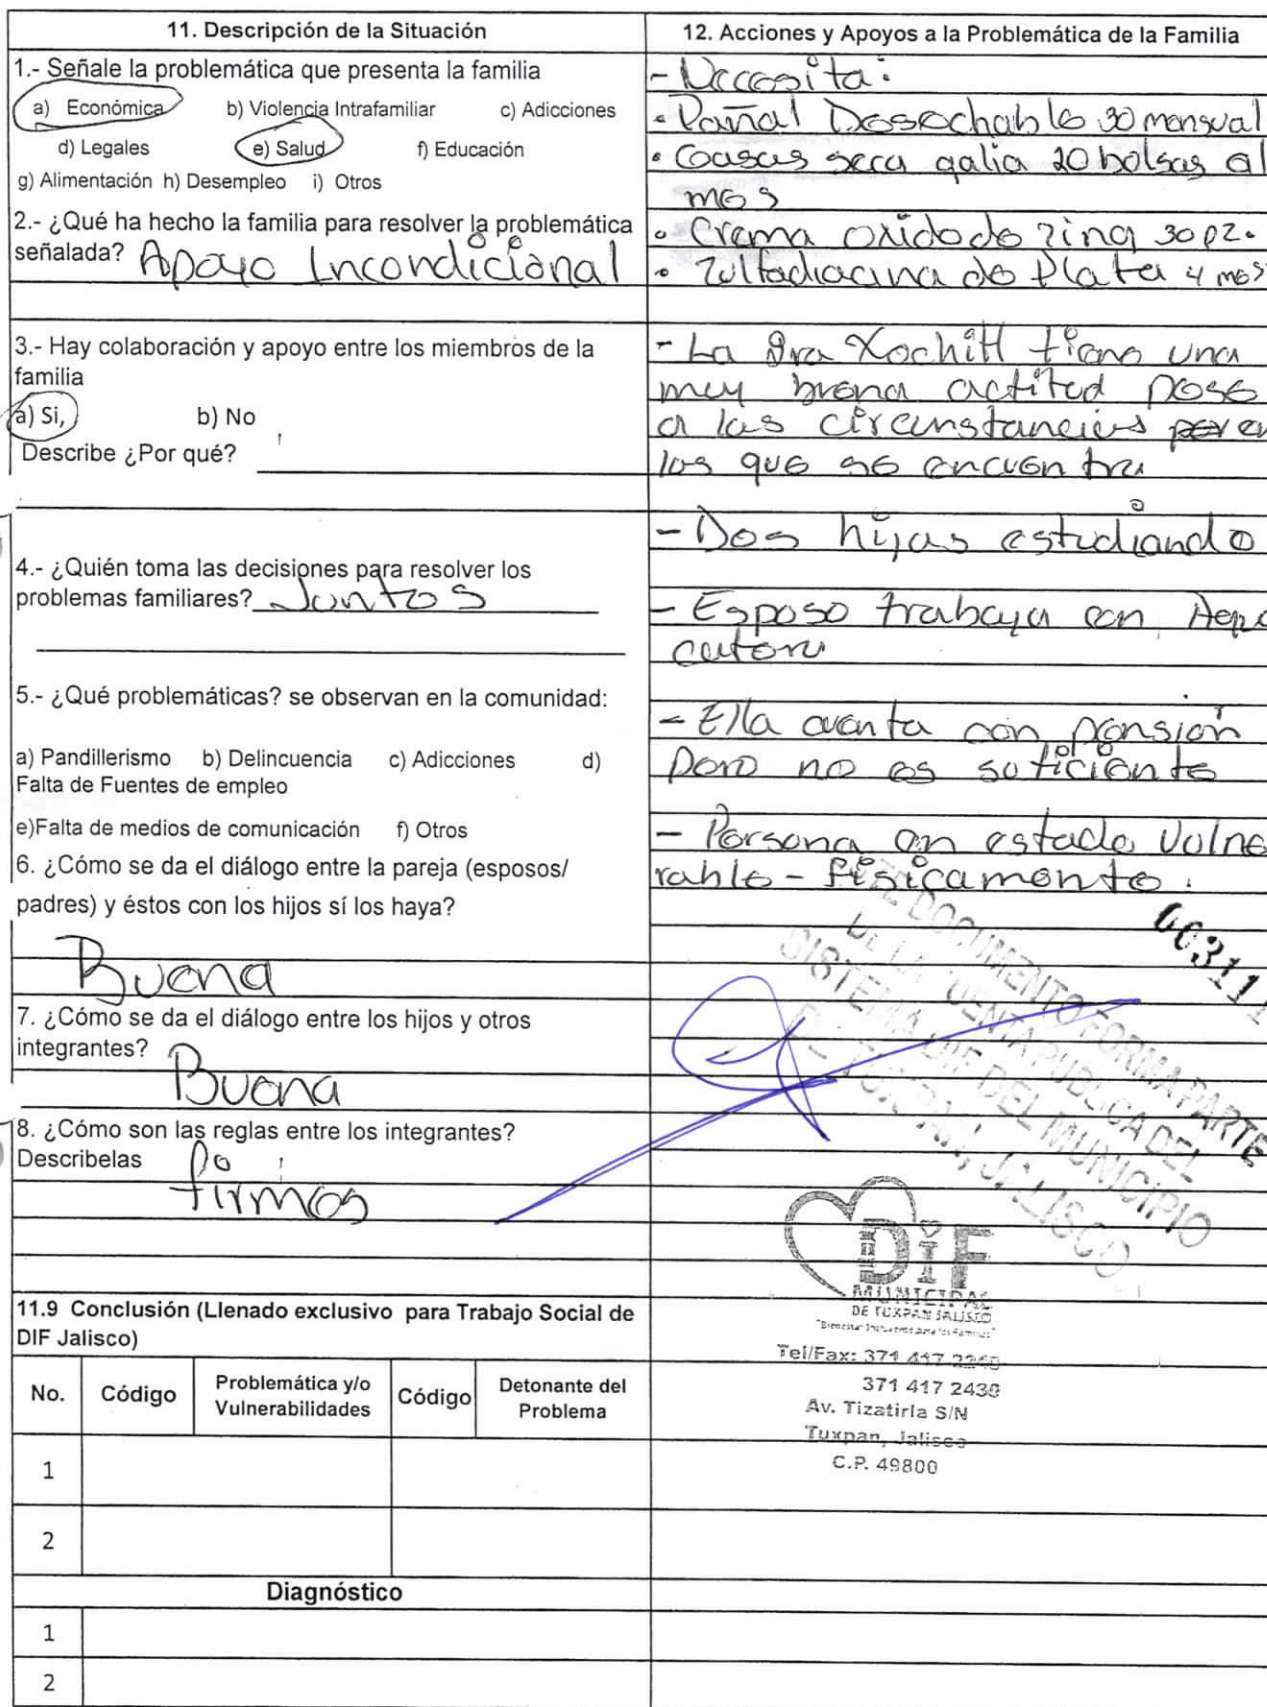 11. Descripción de la Situación
1.- Señale la problemática que presenta la familia
a) Económica b) Violencia Intrafamiliar c) Adicciones
d) Legales e) Salud f) Educación
g) Alimentación h) Desempleo i) Otros
2.- ¿Qué ha hecho la familia para resolver la problemática
señalada? Apoyo Incondicional
3.- Hay colaboración y apoyo entre los miembros de la
familia
a) Si, b) No
Describe ¿Por qué?
4.- ¿Quién toma las decisiones para resolver los
problemas familiares? Juntos
5.- ¿Qué problemáticas? se observan en la comunidad:
a) Pandillerismo b) Delincuencia c) Adicciones d)
Falta de Fuentes de empleo
e)Falta de medios de comunicación f) Otros
6. ¿Cómo se da el diálogo entre la pareja (esposos/
padres) y éstos con los hijos sí los haya?
Buena
7. ¿Cómo se da el diálogo entre los hijos y otros
integrantes?
Buena
8. ¿Cómo son las reglas entre los integrantes?
Describelas
firmes
11.9 Conclusión (Llenado exclusivo para Trabajo Social de
DIF Jalisco)
No. Código Problemática y/o Vulnerabilidades Código Detonante del Problema
1
2
Diagnóstico
1
2
12. Acciones y Apoyos a la Problemática de la Familia
- Necesita:
• Pañal Desechable 30 mensual
• Gasas seca 20 bolsas al
mes
• Crema oxido de zinq 30 pz.
• de Plata 4 mes
- La Xochitl tiene una
muy buena actitud pese
a las circunstancias en
los que se encuentra
- Dos hijas estudiando
- Esposo trabaja en
- Ella cuenta con pensión
pero no es suficiente
- Persona en estado Vulne
rable - físicamente.
DOCUMENTO FORMA PARTE
DE LA CUENTA PUBLICA DEL
SISTEMA DIF DEL MUNICIPIO
DE TUXPAN, JALISCO
DIF
MUNICIPAL
DE TUXPAN JALISCO
Tel/Fax: 371 417
371 417 2438
Av. Tizatirla S/N
Tuxpan, Jalisco
C.P. 49800